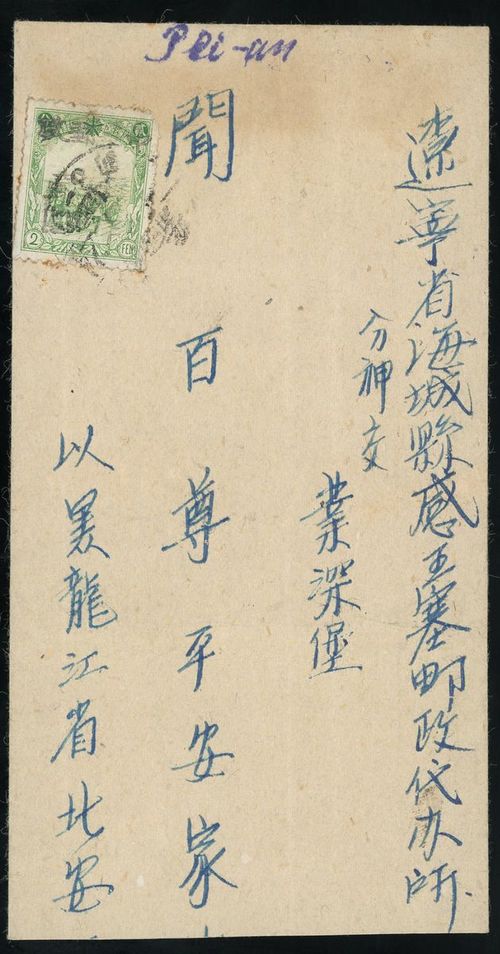 Pei-an
遼寧省海城縣感王塞邮政代办所
分神交
業深堡
聞百尊平安家
以黑龍江省北安
2